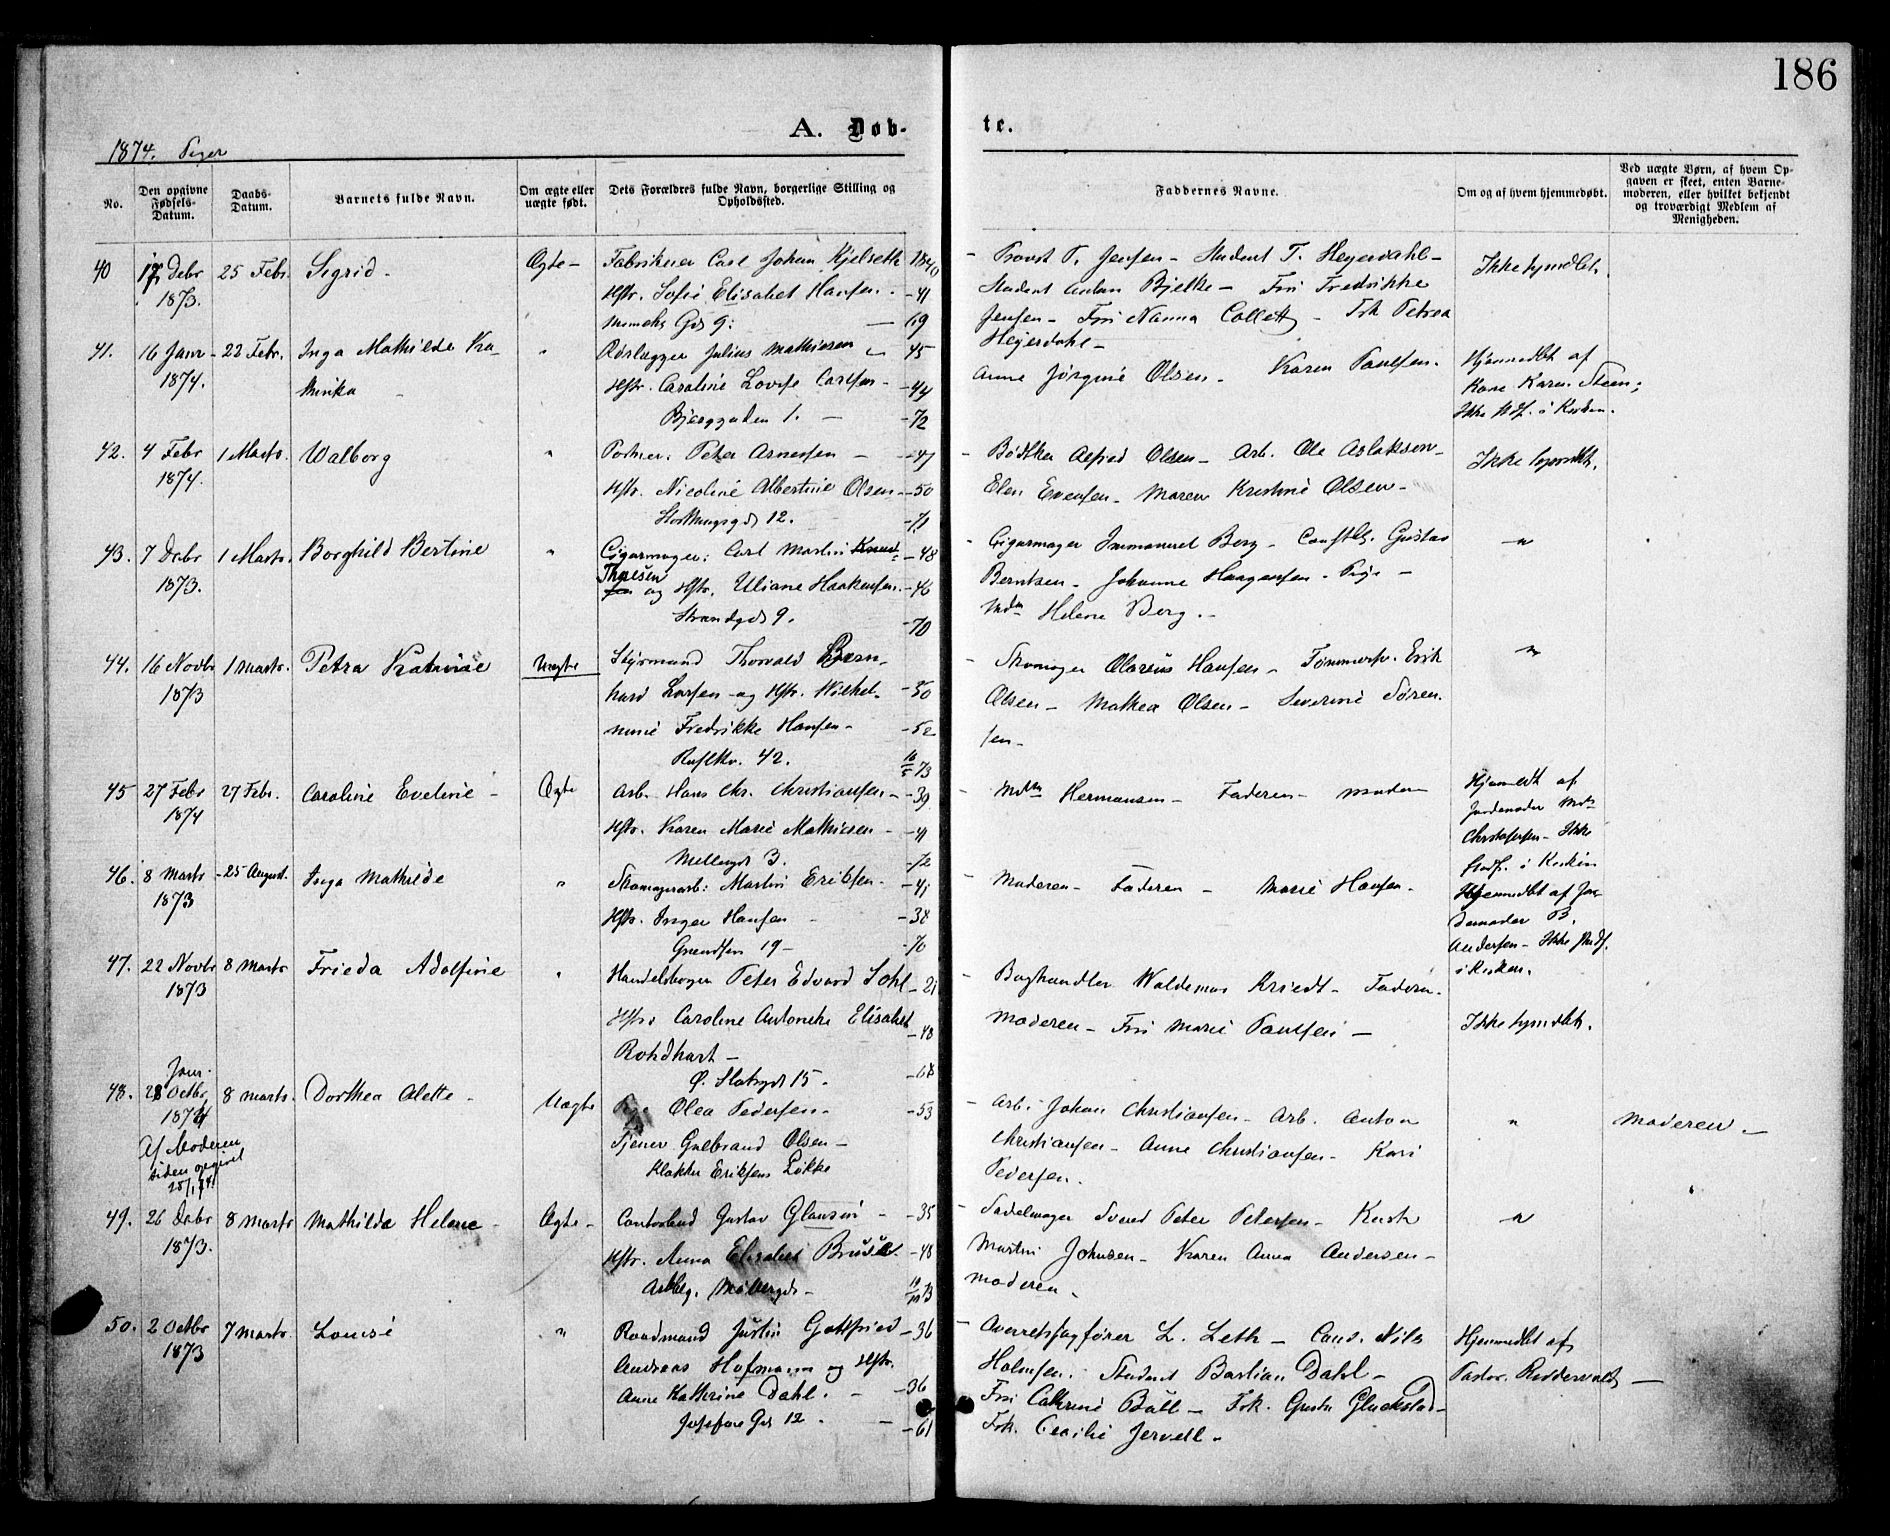 186
A. Døb-
te.
1874. Piger
No.
Den opgivne Fødsels-Datum.
Daabs-Datum.
Barnets fulde Navn.
Om ægte eller uægte født.
Dets Forældres fulde Navn, borgerlige Stilling og Opholdssted.
Faddernes Navne.
Om og af hvem hjemmedøbt.
Ved uægte Børn, af hvem Op-
gaven er skeet, enten Barne-
moderen, eller hvilket bekjendt
og troværdigt Medlem af
Menigheden.
40 17 Debr 25 Febr. Sigrid - Ægte - Fabrikeier Carl Johan Kjelseth - 1840 - Provst P. Jensen - Student T. Heyerdahl -
1873. Hstr. Sofie Elisabet Hansen. - 41 Student Anton Bjelke - Frk Fredrikke
Gd 9: - 69 Jensen - Frk Nanna Collett - Frk Petrea
Heyerdahl -
41. 16 Janr - 22 Febr. Inga Mathilde Kra- " Rørlægger Julius Mathiesen - 45 Anne Jørgine Olsen - Karen Paulsen. Hjemmedbt af
1874. minka - Hstr. Caroline Lovise Carlsen - - 44 Kone Karen Steen;
Bjerggaden 1. - - 72 Ikke Stdf. i Kirken.
42. 4 Febr 1 Marts. Walborg " Portner: Peter Arnesen - - 47 - Bødtker Alfred Olsen - Arb. Ole Aslaksen -
1874. Hstr. Nicoline Albertine Olsen - 50 Elen Evensen - Maren Kristine Olsen -
Storthingsgd 12. - 71
43. 7 Debr 1 Marts. Borghild Bertine " Cigarmager: Carl Martin Knud- - 48 - Cigarmager Immanuel Berg - Gustav
1873. Thoresen
sen og Hstr. Uliane Haakensen. - 46 Berntsen - Johanne Haagensen - Pige -
Strandgd 9. - 70 Mdm Helene Berg. -
44. 16 Novbr 1 Marts. Petra Katrine Uægte Styrmand Thorvald Bern- - Skomager Olaves Hansen - Tømmerm. Erik "
1873 hard Larsen - og Hstr. Wilhel- - 50 Olsen - Mathea Olsen - Severine Søren
mine Fredrikke Hansen - - 52 sen -
42. 73
45 27 Febr 27 Febr. Caroline Eveline - Ægte Arb. Hans Chr. Christiansen - - 39 - Mdm Hermansen - Faderen - Moderen Hjemmedbt af
1874 Hstr. Karen Marie Mathiesen - - 41 Jordemoder Mdm
Møllergd 3. - 72 Christofersen - Ikke
Stadf. i Kirken
46. 8 Marts - 25 August. Inga Mathilde " Skomagerarb: Martin Eriksen. - 41 - Moderen - Faderen - Marie Hansen. Hjemmedbt af Jor
1873 Hstr. Inger Hansen - - 38 demoder B.
Grændsen 19 - - 70 Andersen - Ikke Stadf.
i Kirken.
47. 22 Novbr 8 Marts Frieda Adolfine " Handelsborger Peter Edvard Sohl - 21 - Boghandler Waldemar Kriedt - Faderen.
1873 Hstr. Caroline Antonette Elisabet - 48 Moderen - Frk Marie Paulsen - Ikke hjmdbt.
Rohdhart -
Ø. Slotsgd 15. - 68
Janr.
48. 28 Octbr 8 Marts. Dorthea Alette - Uægte Pige Olea Pedersen - - 53 - Arb: Johan Christiansen - Arb. Anton " Moderen -
1874 Tjener Gulbrand Olsen - Christiansen - Anne Christiansen - Kari
Af Moderen siden opgivet 25/1 74! Eriksens Løkke Pedersen.
49. 26 Debr 8 Marts Mathilde Helene - Ægte - Contorbud Gustav Glausin - - 35 - Sadelmager Svend Peter Petersen - "
1873. Hstr. Anna Elisabet Bruse. - 48 Martin Johnsen - Karen Anna Andersen -
Møllergd - 73 Moderen -
50. 2 Octbr 7 Marts. Louise " Raadmand Justin Gottfried - 36 - Overretssagfører L. Leth - Cand. Nils Hjemmedbt af
1873 Andreas Hofmann og Hstr. Holmsen. Student Bastian Dahl - Pastor Reddervold -
Anne Kathrine Dahl. - - 36 Frk Cathrine Bull - Frk. Gusta Gluckstad -
Josefine Gd 12. - - 61 Frk. Cecilie Jervell -